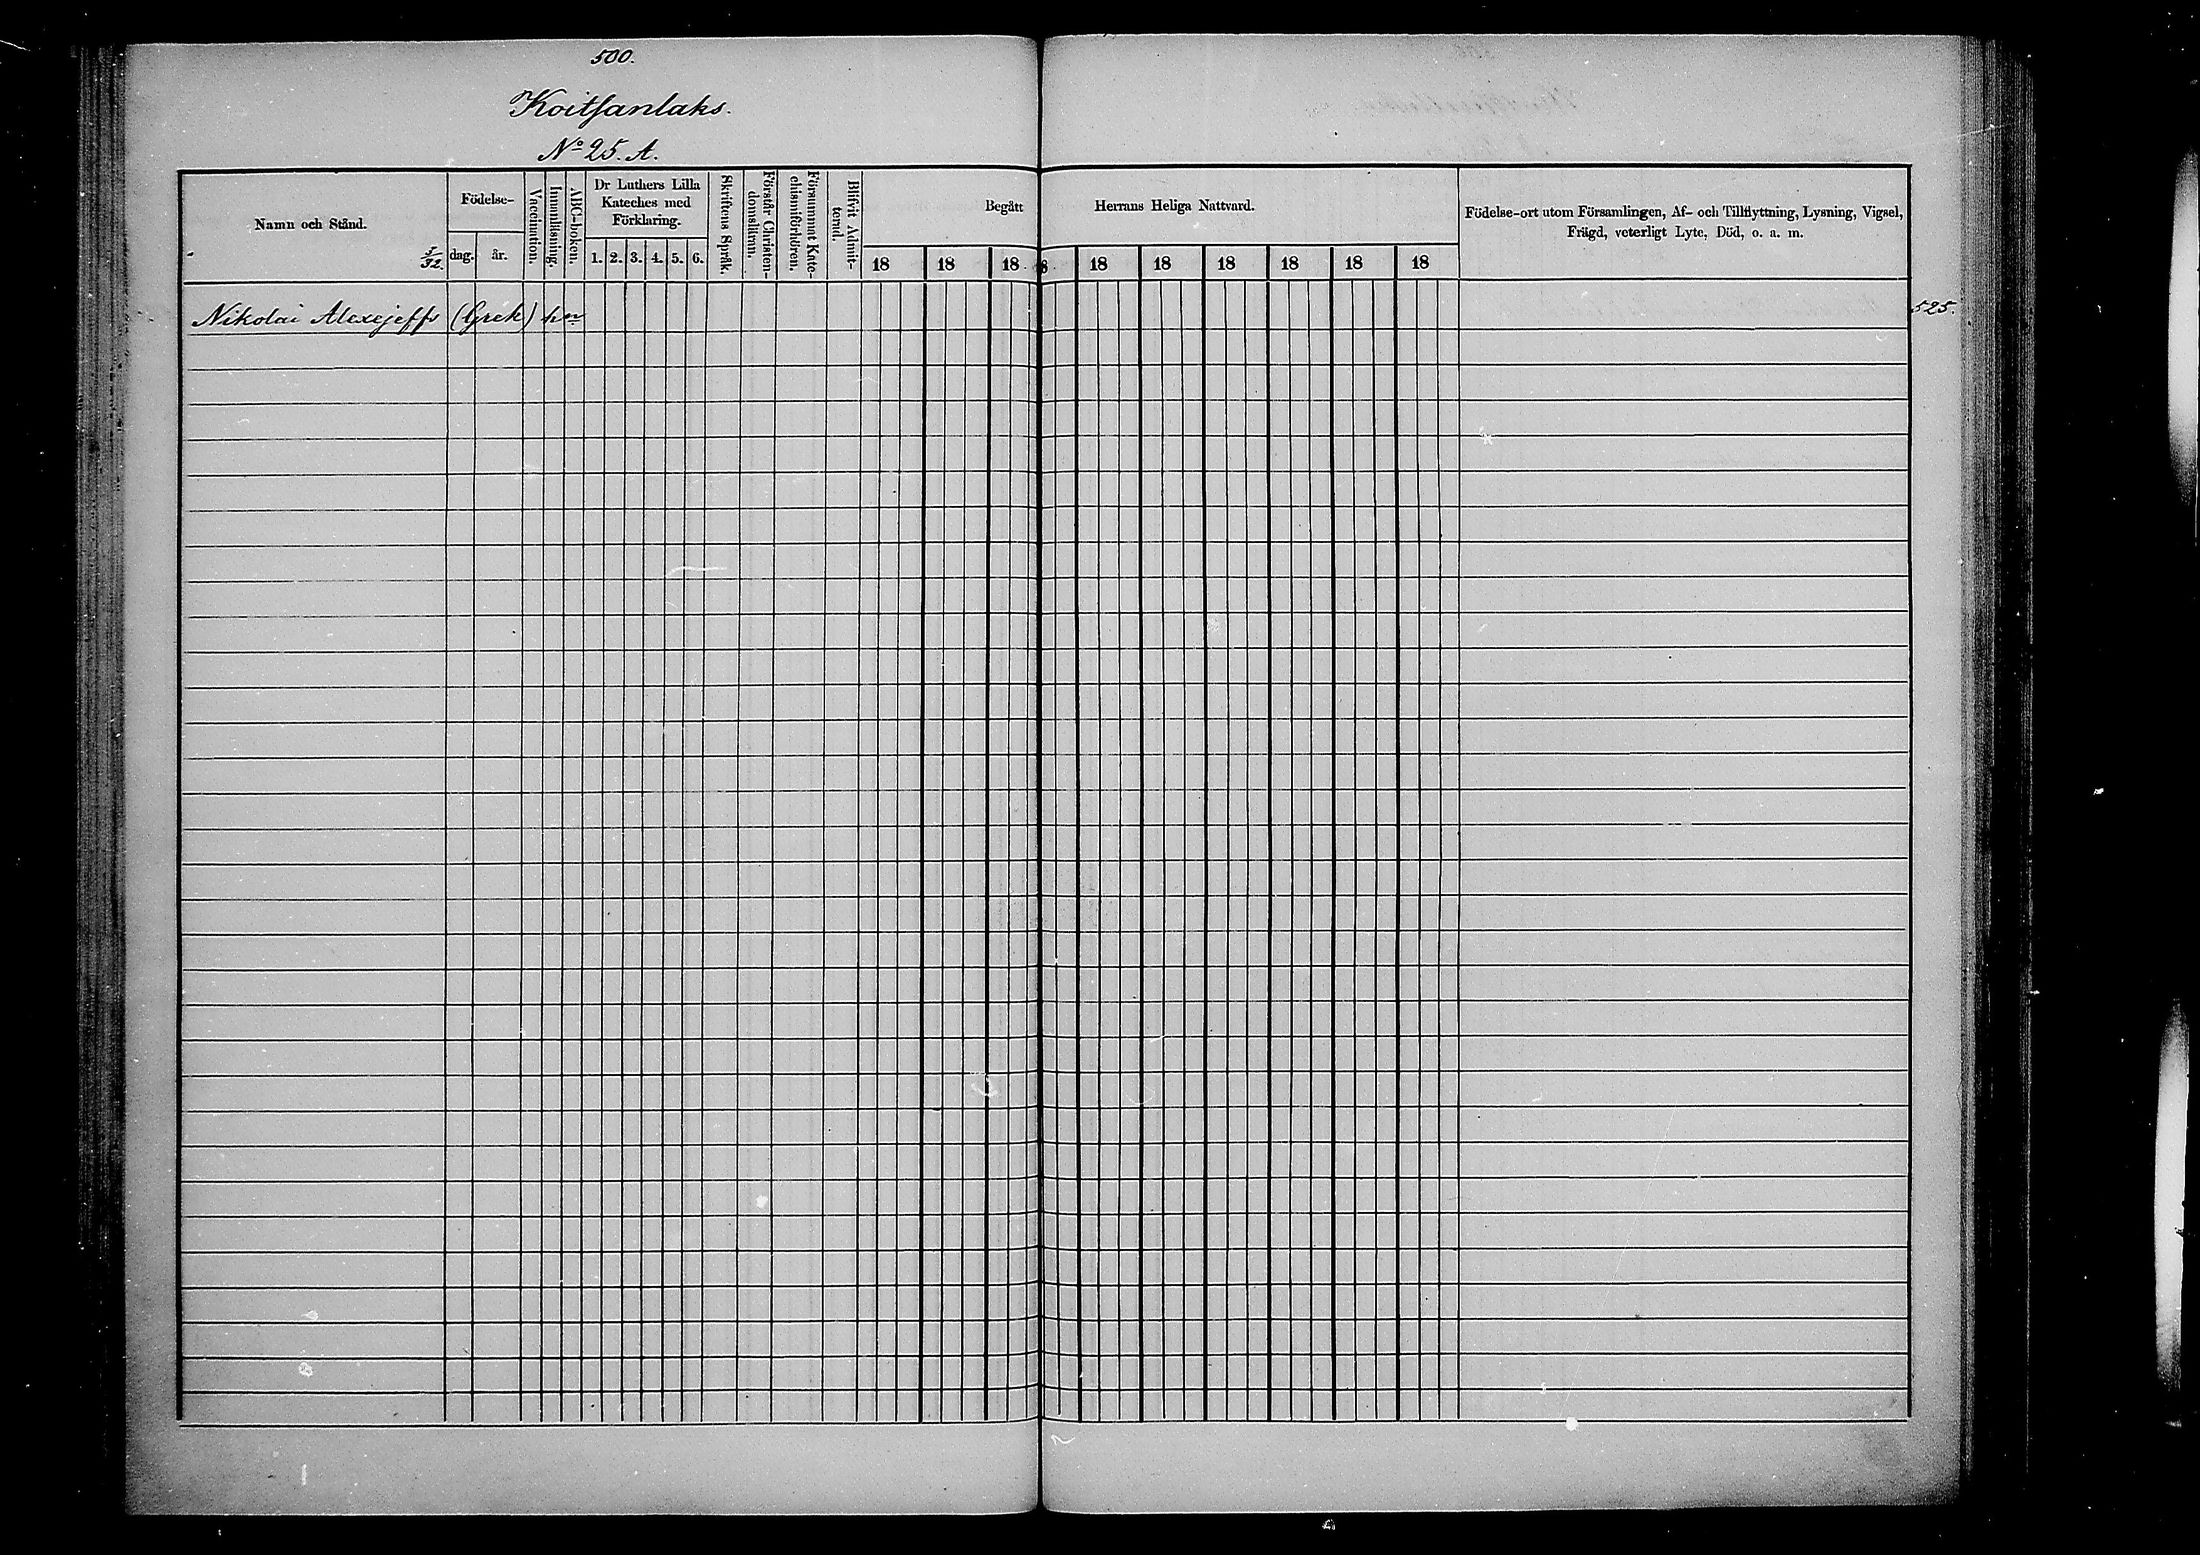 500.
Koitsanlaks.
No 25. A.
Namn och Stånd.
1/32.
Födelse-
dag.
år.
Vaccination.
Innanläsning.
ABC-boken.
Dr Luthers Lilla
Kateches med
Förklaring.
1. 2. 3. 4. 5. 6.
Skriftens Språk.
Förstår Christen-
domsläran.
Försummat Kate-
chismiförhören.
Blifvit Admit-
terad.
Begått Herrans Heliga Nattvard.
18 18 18 18 18 18 18 18 18
Födelse-ort utom Församlingen, Af- och Tillflyttning, Lysning, Vigsel,
Frägd, veterligt Lyte, Död, o. a. m.
Nikolai Alexejeffs (Grek) hn 525.